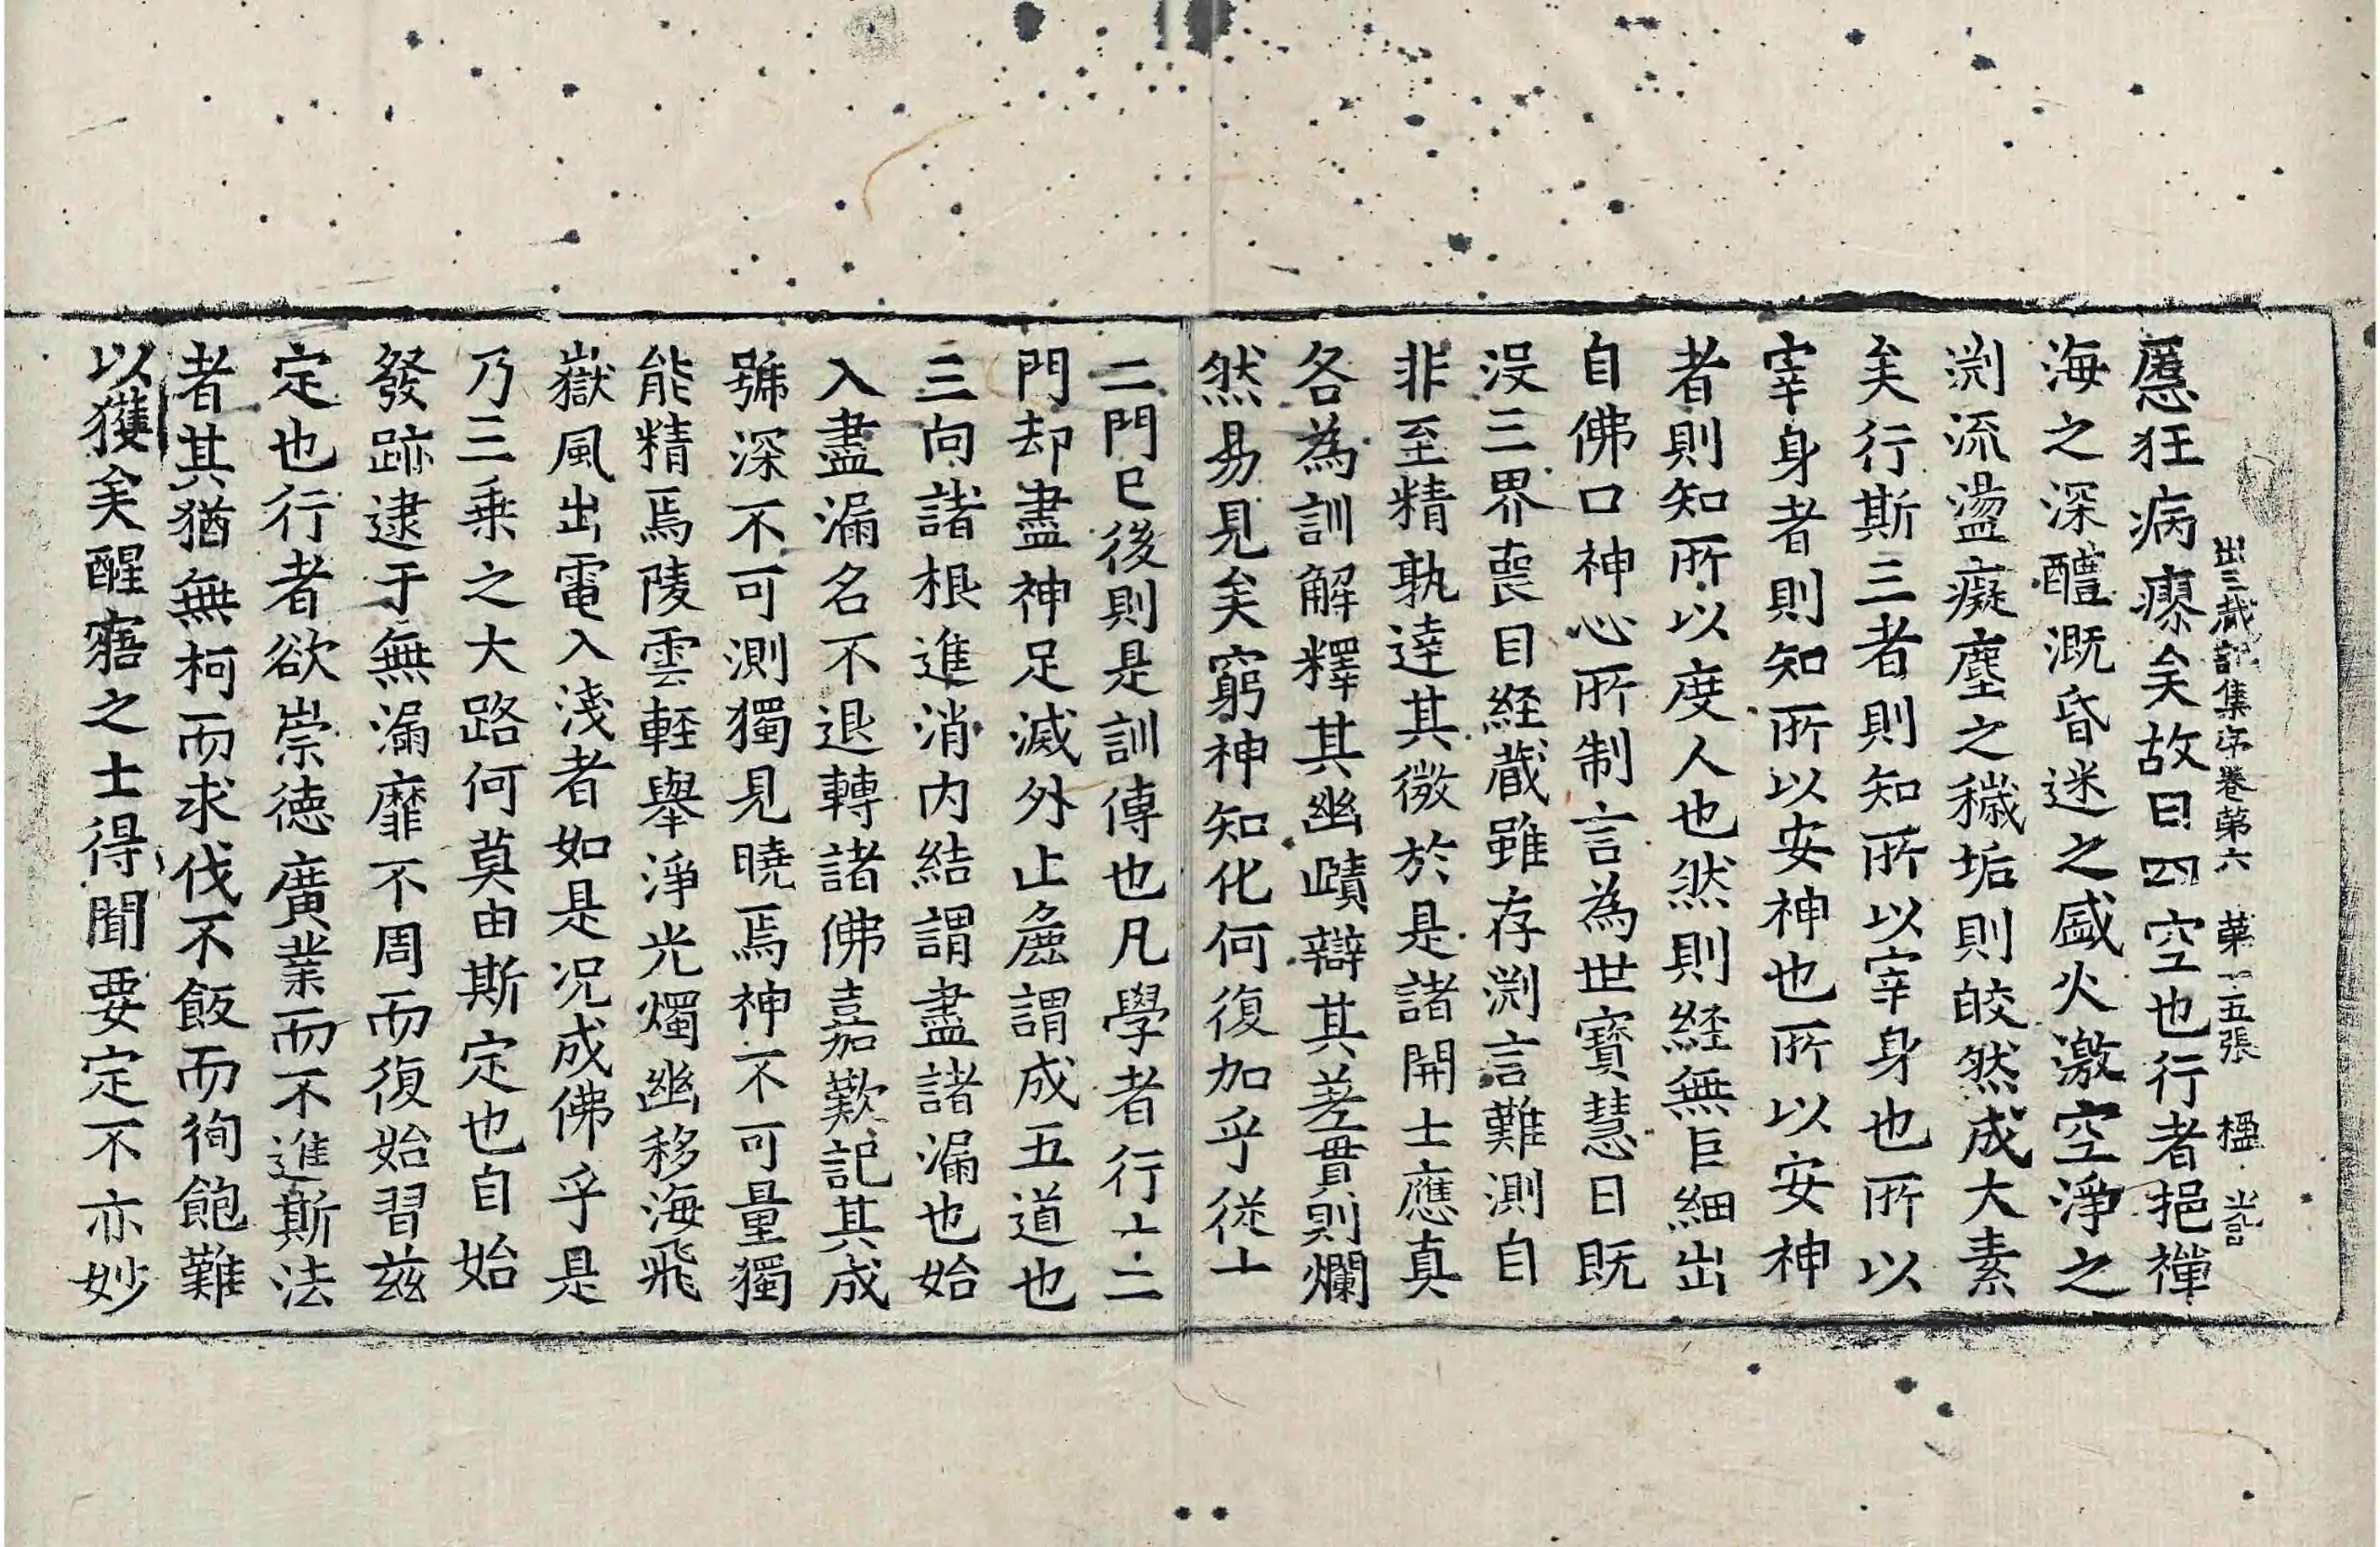 出三蔵記集序卷第六 第十五張 楹
慝狂病瘳矣故曰四空也行者挹禪
海之深醴溉昏迷之盛火激空淨之
渕流盪癡塵之穢垢則皎然成大素
矣行斯三者則知所以宰身也所以
宰身者則知所以安神也所以安神
者則知所以度人也然則経無巨細出
自佛口神心所制言為世寳慧日既
没三界䘮目経蔵雖存渕言難測自
非至精孰逹其微於是諸開士應真
各為訓解釋其幽賾辯其差貫則爛
然易見矣窮神知化何復加乎從十
二門已後則是訓傳也凡學者行十二
門却盡神足滅外止麁謂成五道也
三向諸根進消内結謂盡諸漏也始
入盡漏名不退轉諸佛嘉歎記其成
號深不可測獨見曉焉神不可量獨
能精焉陵雲輕舉淨光燭幽移海飛
嶽風出電入淺者如是况成佛乎是
乃三乗之大路何莫由斯定也自始
發跡逮于無漏靡不周而復始習兹
定也行者欲崇德廣業而不進斯法
者其猶無柯而求伐不飯而徇飽難
以獲矣醒寤之士得聞要定不亦妙